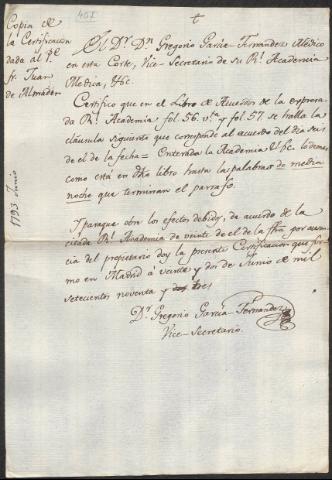 Copia de
la Certificacion
dada al P.e
fr. Juan
de Almaden
407
1793 Junio
El D.r D.n Gregorio Garcia Fernandez Medico
en esta Corte, Vice-Secretario de su R.l Academia
Medica, &c.
Certifico que en el Libro de Acuerdos de la expresa-
da R.l Academia fol. 56. v.ta y fol. 57 se halla la
clausula siguiente que corresponde al acuerdo del dia
de el de la fecha = Enterada la Academia &c.
como está en dho libro hasta las palabras de media
noche que terminan el parrafo.
Y para que obre los efectos debidos, de acuerdo de la
citada R.l Academia de veinte de el de la fha, por ausen-
cia del propietario doy la presente Certificacion que fir-
mo en Madrid a veinte y dos de Junio de mil
setecientos noventa y tres
D.r Gregorio Garcia Fernandez
Vice-Secretario.